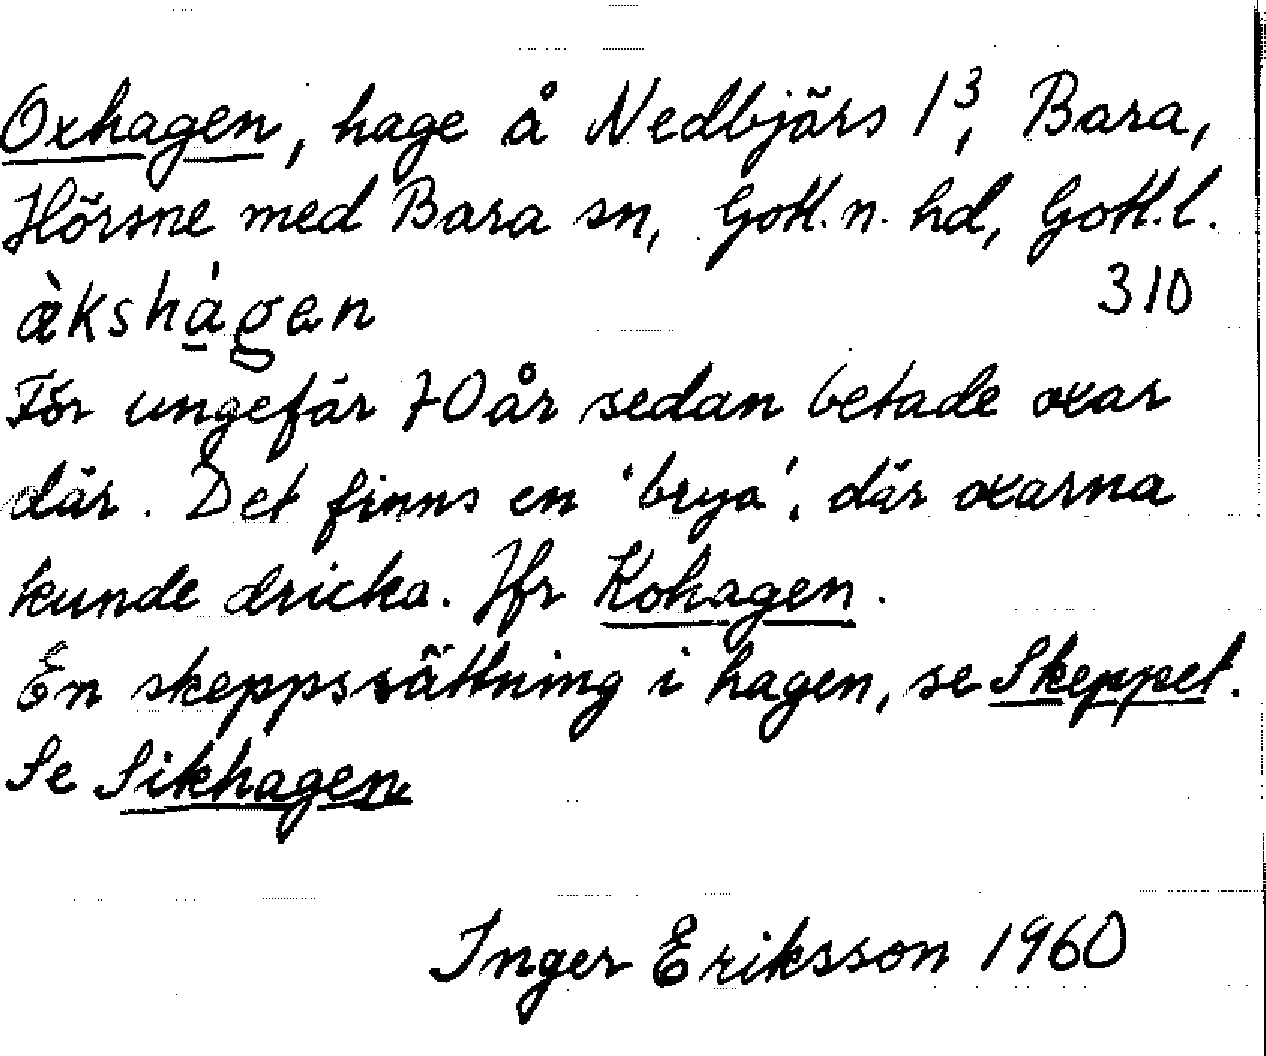 Oxhagen, hage å Nedbjärs 1³, Bara,
Hörsne med Bara sn, Gotl. n. hd, Gotl. l.
àkshágen 310
För ungefär 70 år sedan betade oxar
där. Det finns en 'brya', där oxarna
kunde dricka. Jfr Kohagen.
En skeppssättning i hagen, se Skeppet.
Se Sikhagen
Inger Eriksson 1960